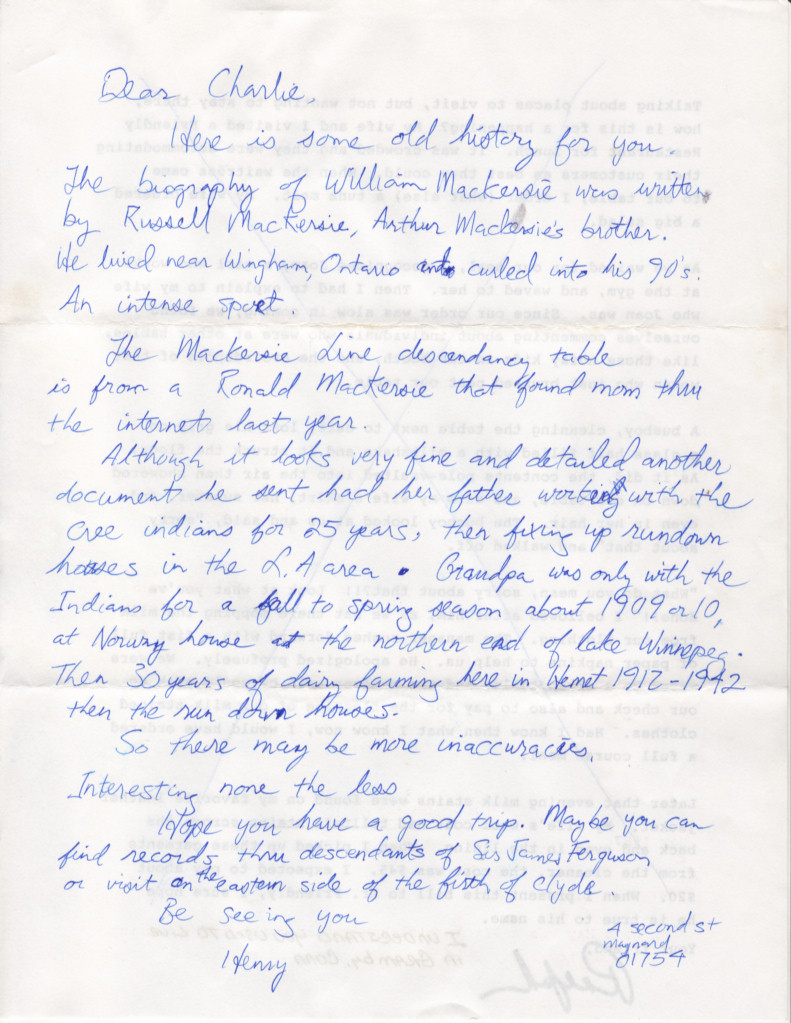 Dear Charlie,
Here is some old history for you.
The biography of William Mackersie was written
by Russell Mackersie, Arthur Mackersie's brother.
He lived near Wingham, Ontario and curled into his 90's.
An intense sport.
The Mackersie Line descendancy table
is from a Ronald Mackersie that found mom thru
the internet last year.
Although it looks very fine and detailed another
document he sent had her father working with the
Cree indians for 25 years, then fixing up rundown
houses in the L.A area. Grandpa was only with the
Indians for a fall to spring season about 1909 or 10,
at Norway house at the northern end of lake Winnepeg.
Then 30 years of dairy farming here in Hemet 1912-1942
then the run down houses.
So there may be more inaccuracies.
Interesting none the less
Hope you have a good trip. Maybe you can
find records thru descendants of Sir James Ferguson
or visit on the eastern side of the firth of Clyde.
Be seeing you
Henry
4 second st
maynard
01754